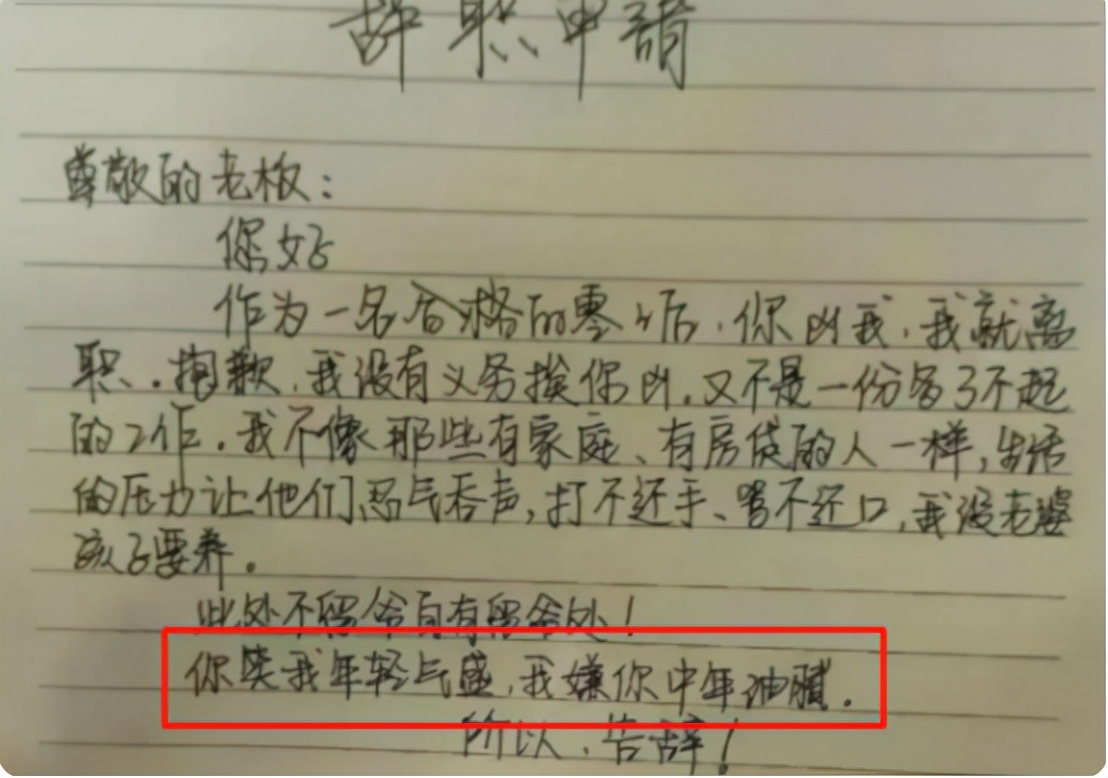 辞职申请
尊敬的老板：
您好
作为一名合格的零零后，你凶我，我就离
职。抱歉，我没有义务挨你凶，又不是一份多了不起
的工作。我不像那些有家庭、有房贷的人一样，生活
的压力让他们忍气吞声，打不还手、骂不还口，我没老婆
孩子要养。
此处不留爷自有留爷处！
你笑我年轻气盛，我嫌你中年油腻。
所以，告辞！